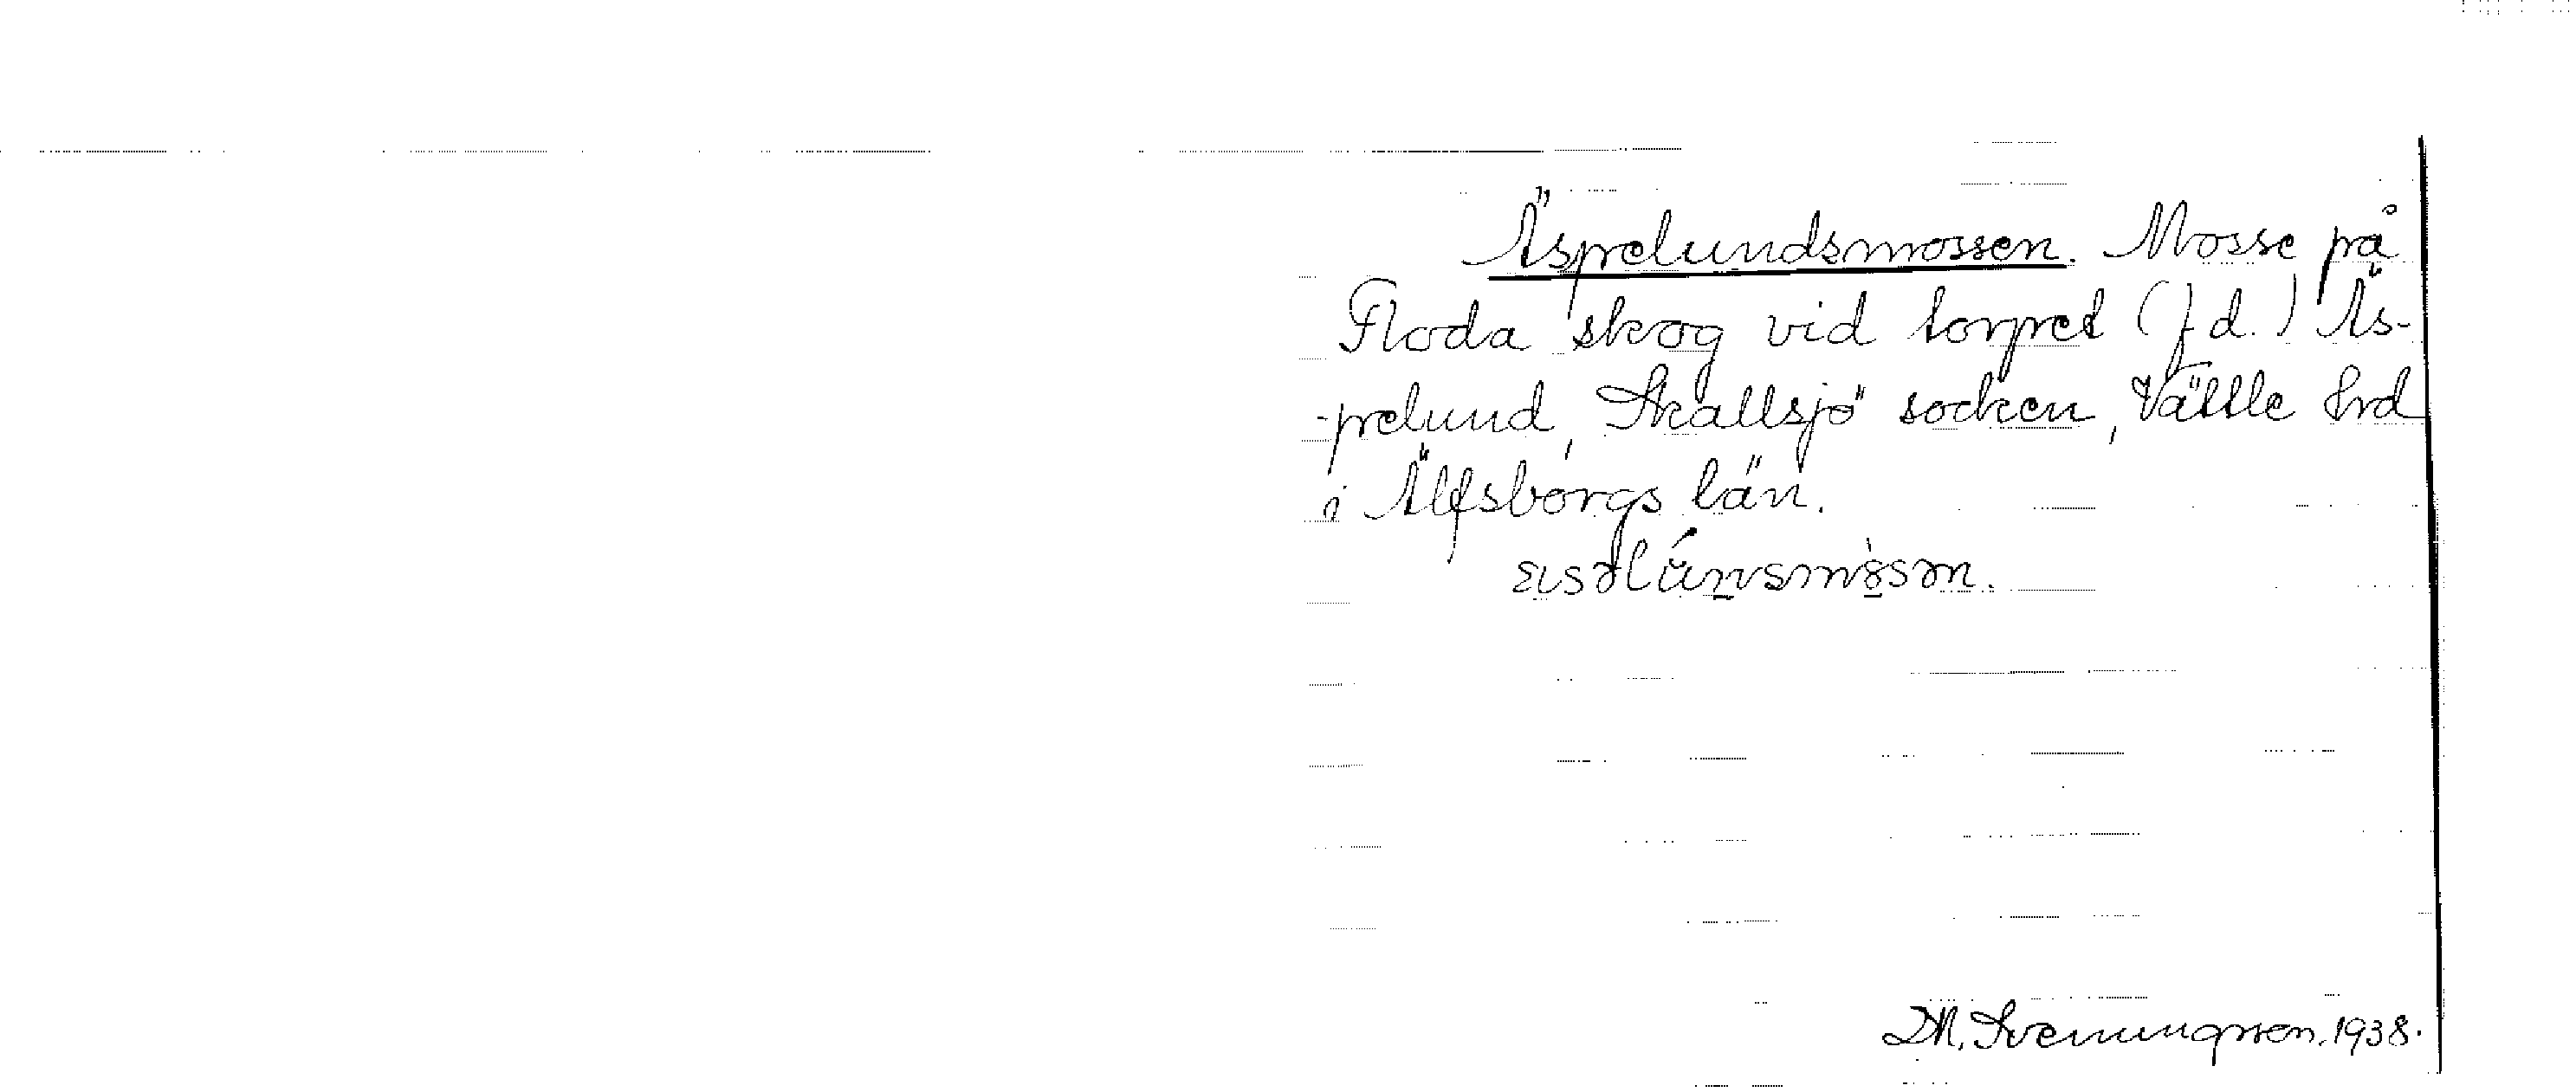 Äspelundsmossen. Mosse på
Floda skog vid torpet (f d.) Äs-
-pelund, Skallsjö socken, Vättle Hrd
i Älfsborgs län.
D.M. Sveningsson. 1938.